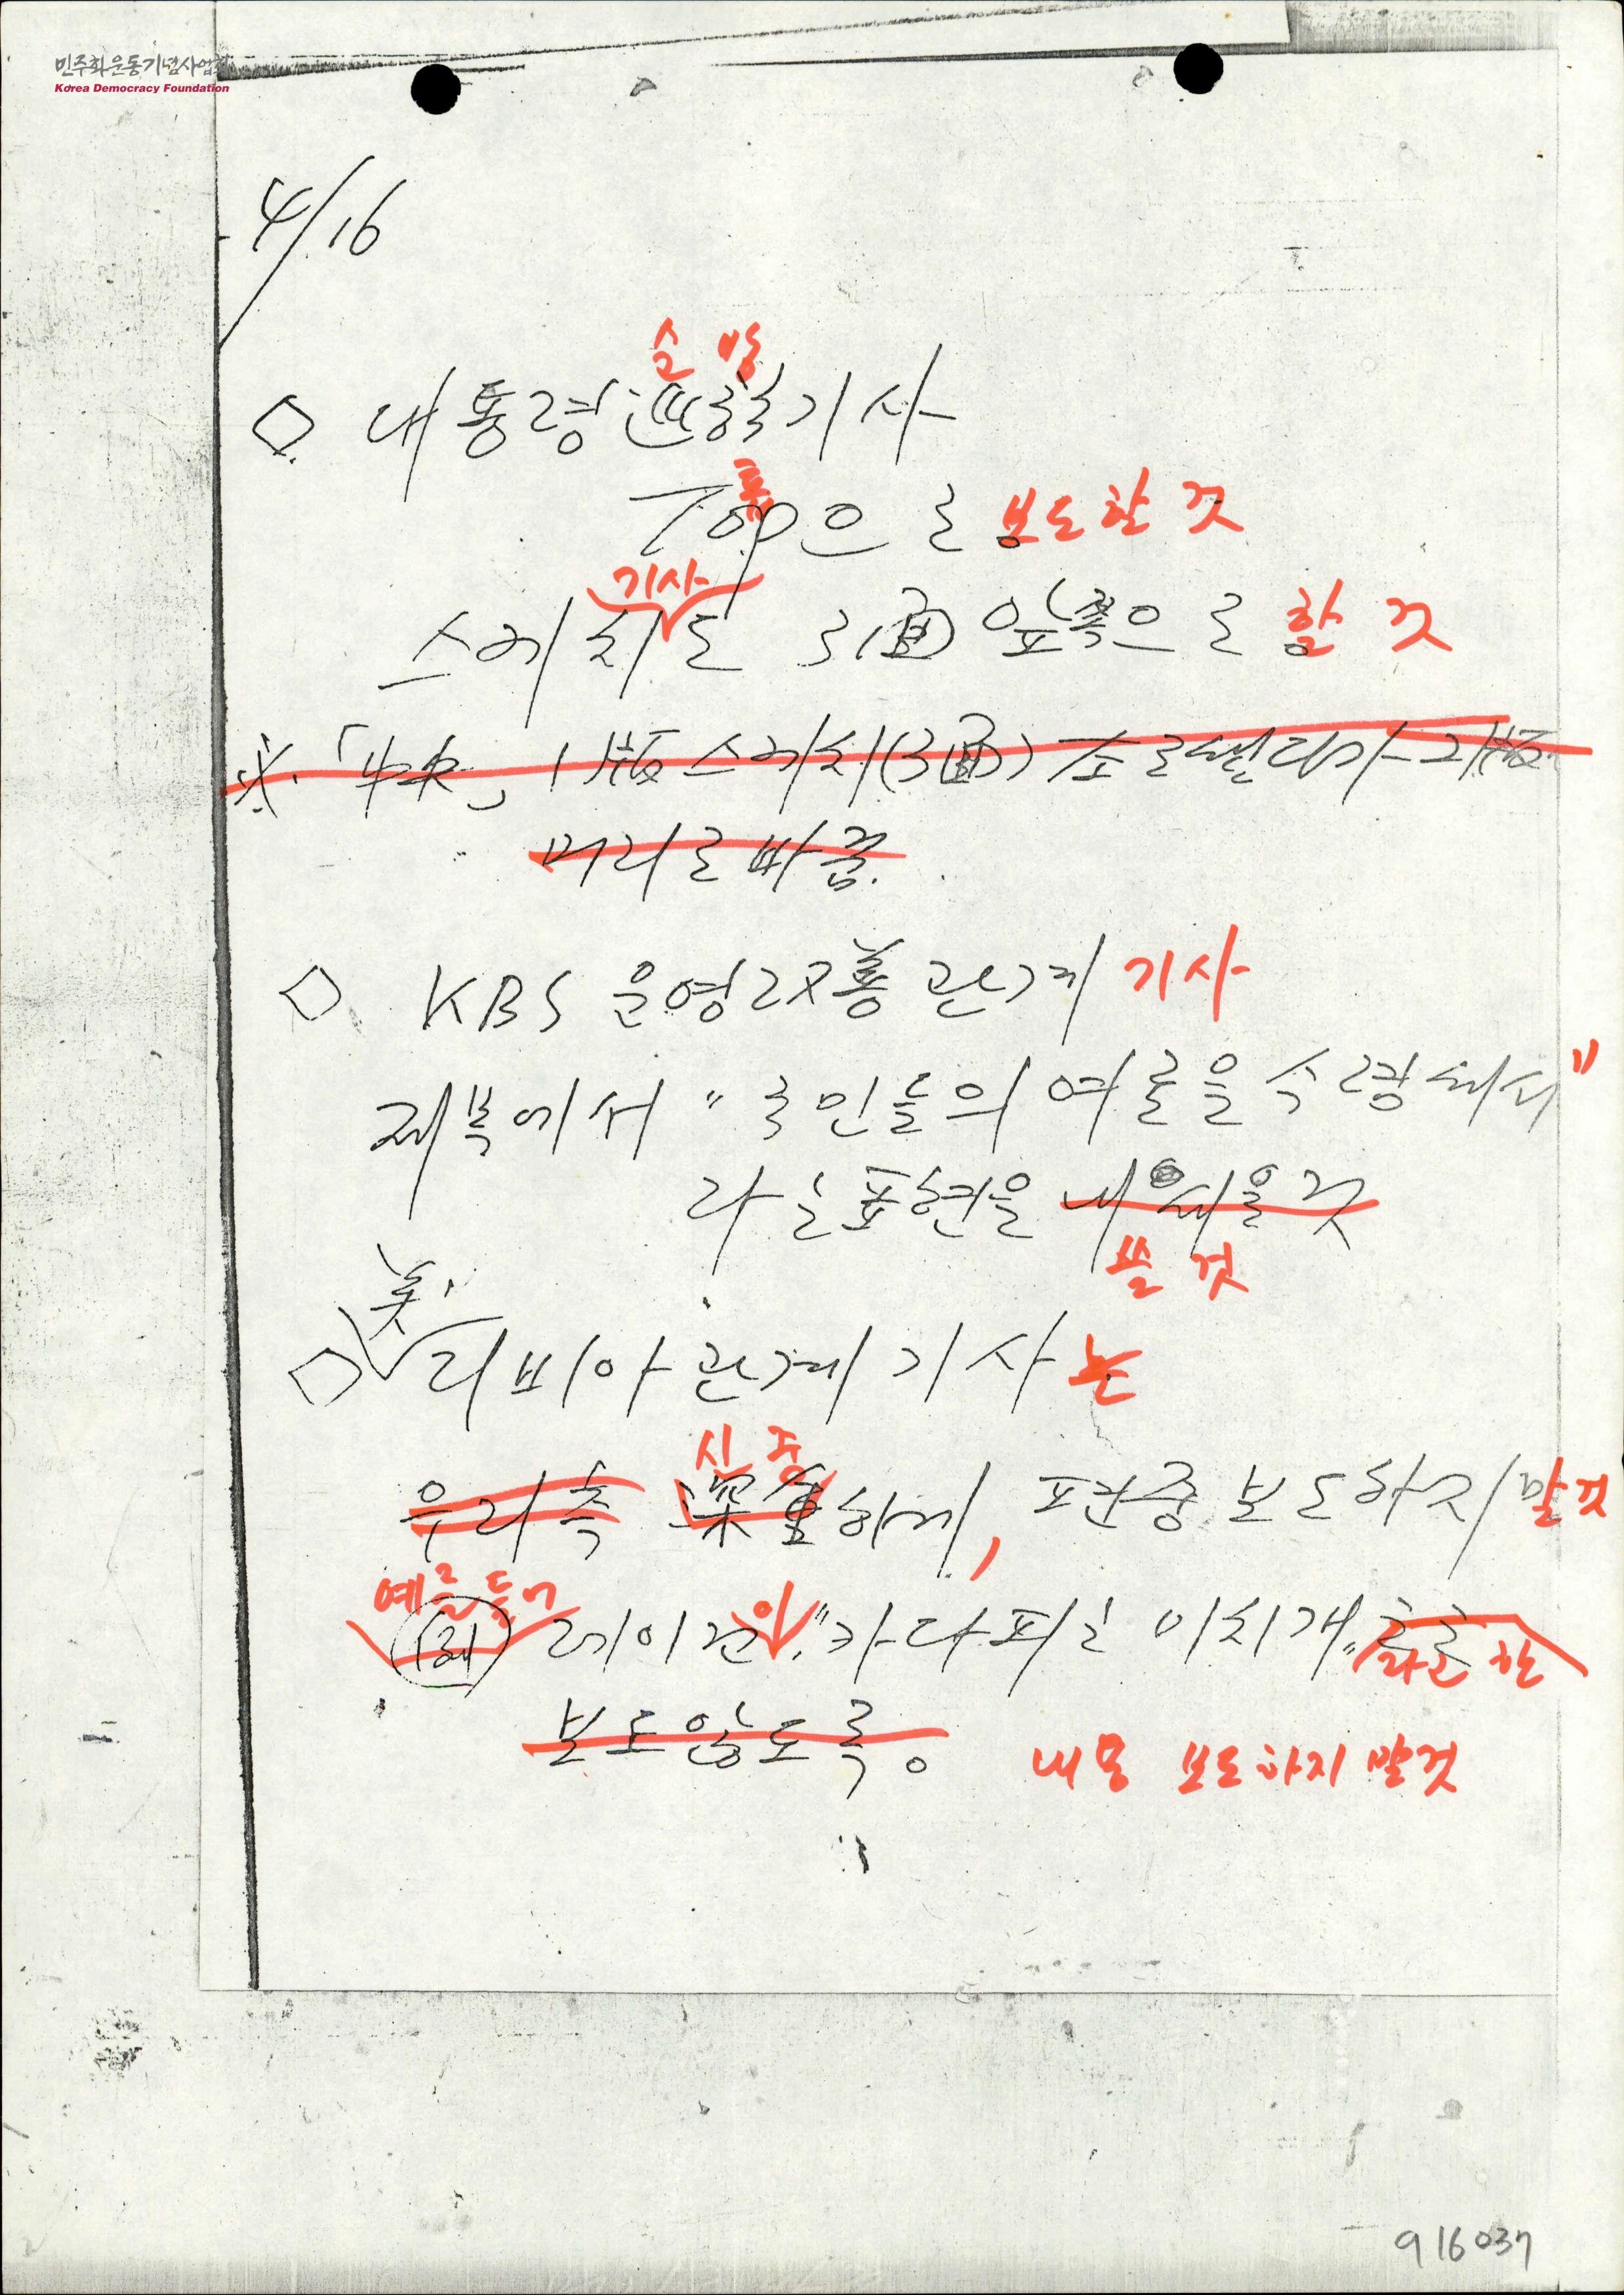 민주화운동기념사업회
Korea Democracy Foundation
4/16
순방
◇ 대통령 巡訪기사
톱
Top으로 보도할 것
기사
스케치는 3面 앞쪽으로 할 것
※「中央」1版 스케치(3面) 조그맣 2版
머리로 바꿈.
◇ KBS 운영 관계 기사
제목에서 "국민들의 여론을 수렴해서"
라는 표현을 내세울 것
쓸 것
美·
◇ 리비아 관계 기사는
신중
우리측 深重하게, 편중보도하지 말 것
예를 들어
(예) 레이건이 "카다피는 미치개"
라고 한
보도 않도록。 내용 보도하지 말 것
916037